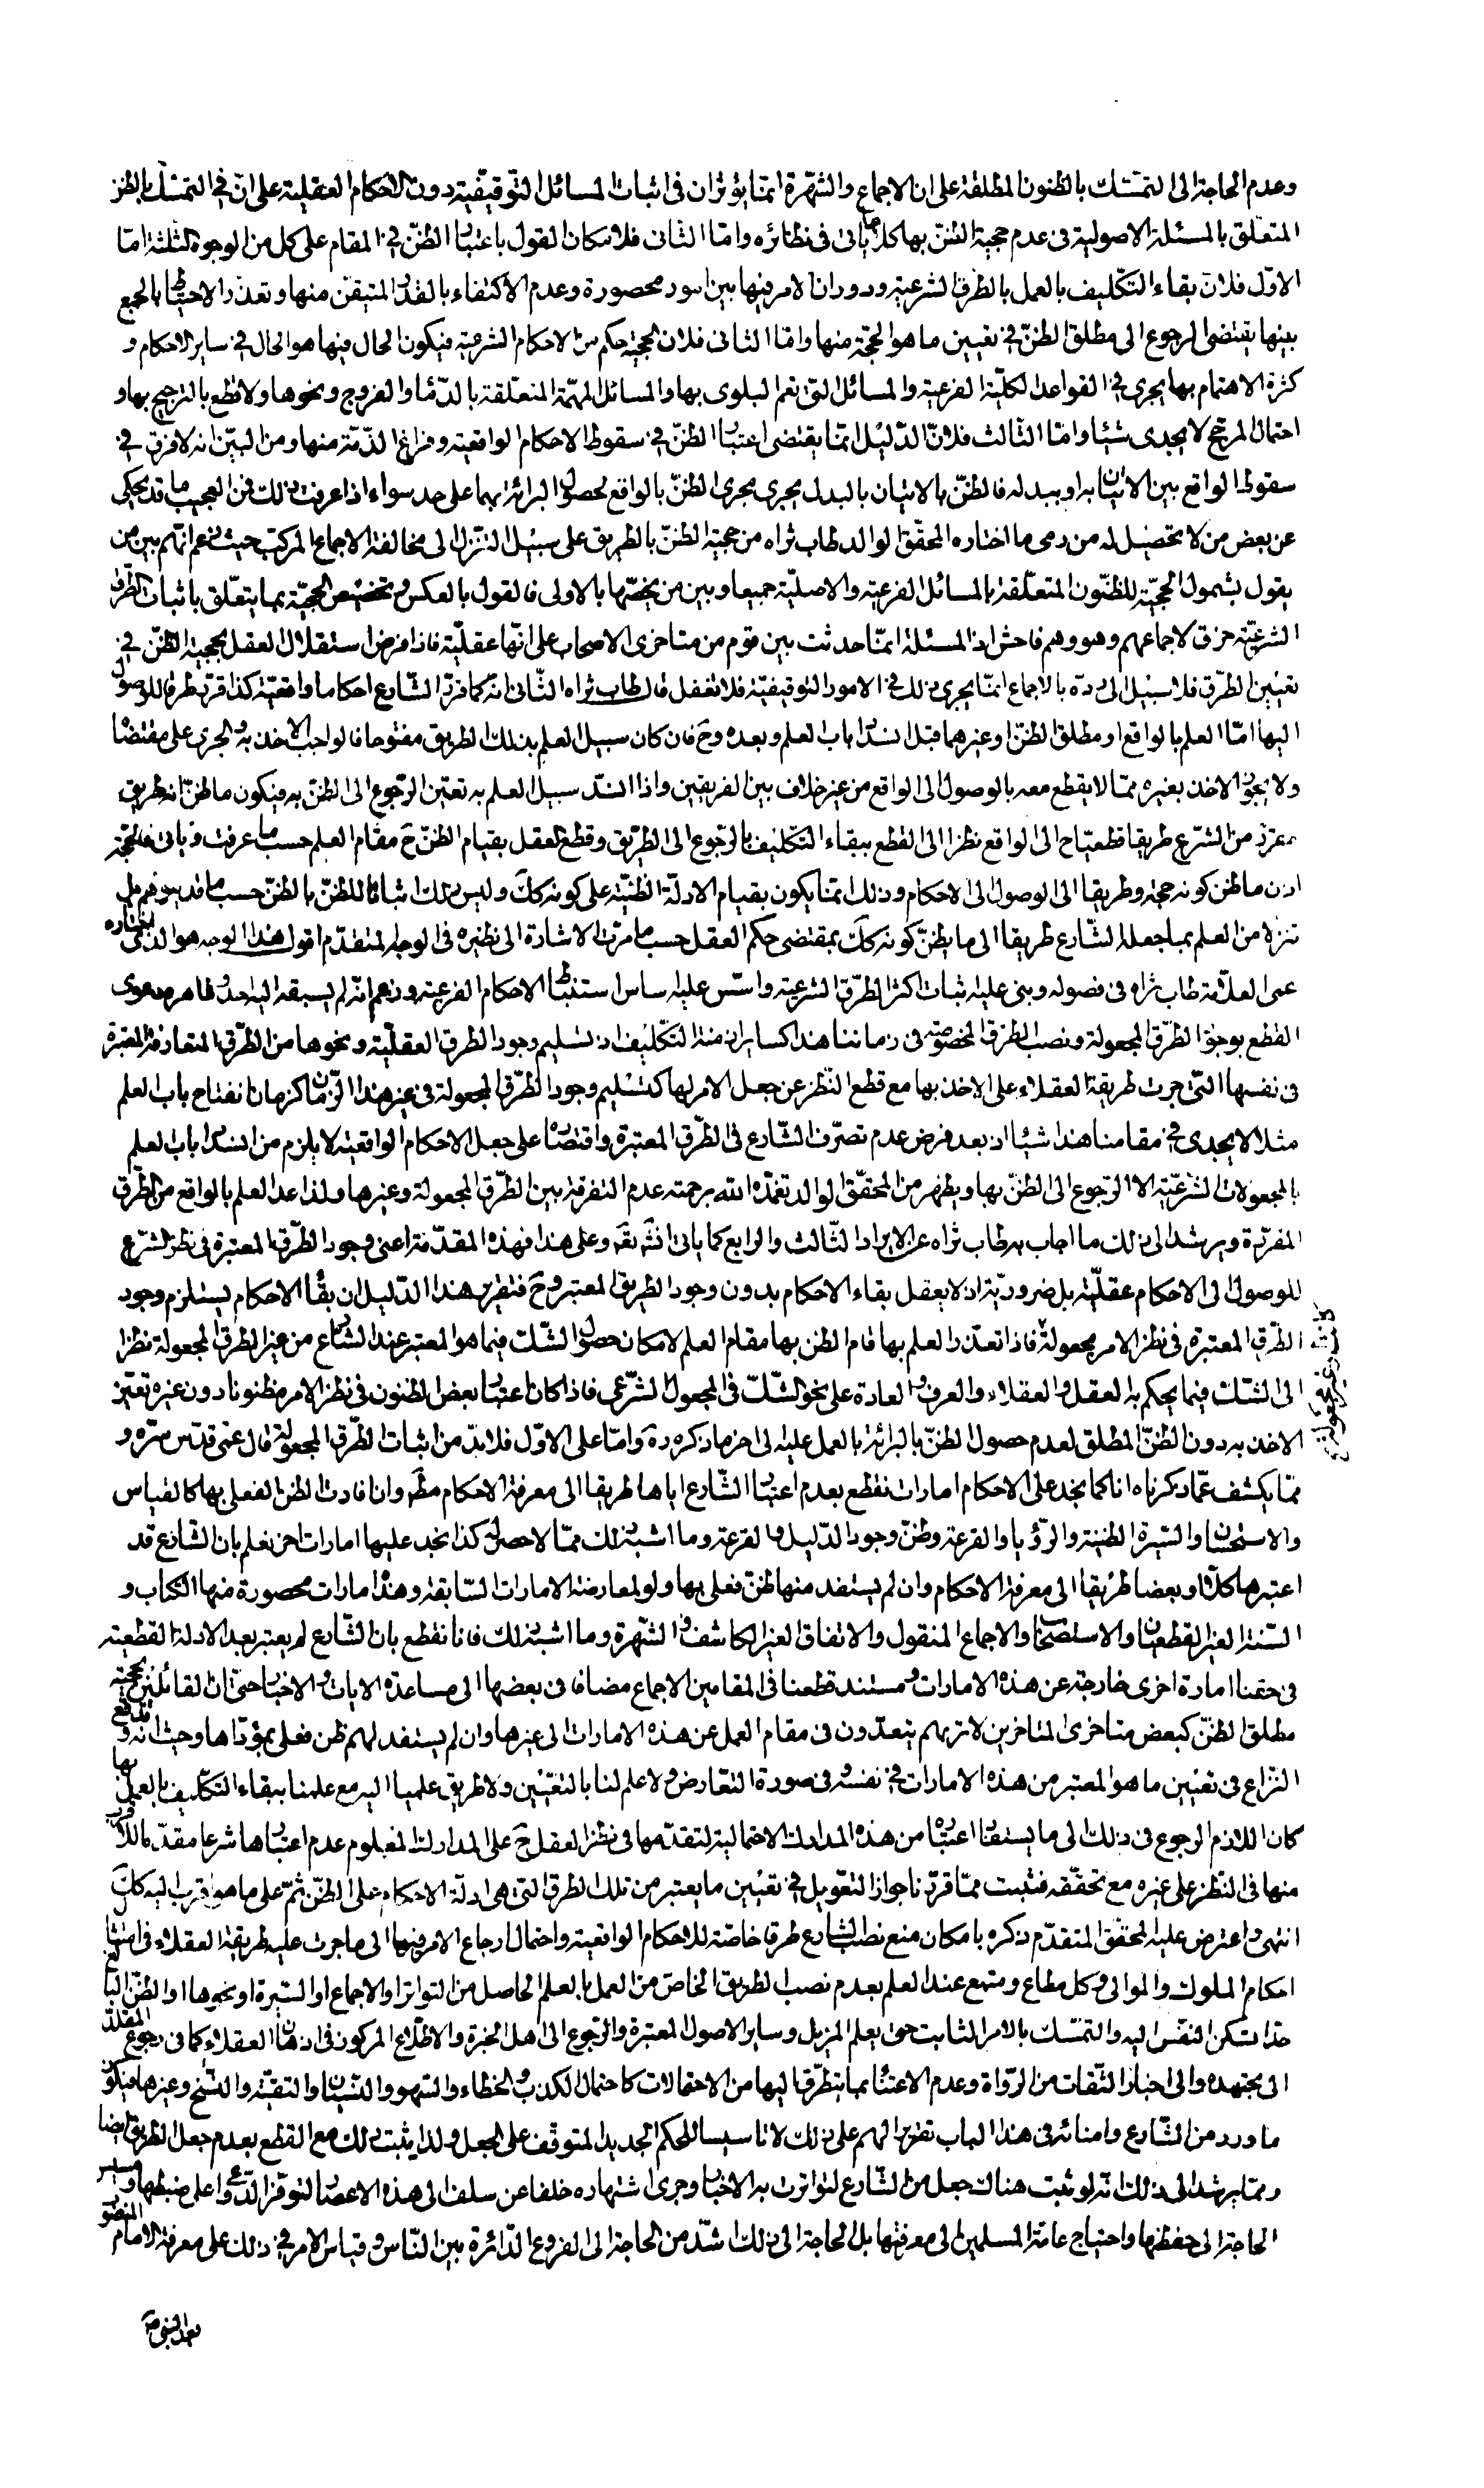 وعدم الحاجة الى التمسّك بالظنون المطلقة على ان الاجماع والشهرة انمّا يؤثران فى اثبات المسائل التوقيفية دون الاحكام العقلية على انّ فى التمسّك بالظن
المتعلّق بالمسئلة الاصولية فى عدم حجية الظنّ بها كلاما ياتى فى نظائره وامّا الثانى فلامكان القول باعتبار الظنّ فى المقام على كل من الوجوه الثلثة امّا
الاوّل فلانّ بقاء التكليف بالعمل بالطرق الشرعية ودوران الامر فيها بين امور محصورة وعدم الاكتفاء بالقدر المتيقن منها وتعذّر الاحتياط بالجمع
بينها يقتضى الرجوع الى مطلق الظنّ فى تعيين ما هو الحجّة منها وامّا الثانى فلان الحجية حكم من الاحكام الشرعية فيكون الحال فيها هو الحال فى ساير الاحكام و
كثرة الاهتمام بها يجرى فى القواعد الكليّة الفرعية والمسائل التى تعم البلوى بها والمسائل المهمّة المتعلّقة بالدّماء والفروج ونحوها ولا قطع بالترجيح بها و
احتمال المرجّح لا يجدى شيئا وامّا الثالث فلانّ الدّليل انمّا يقتضى اعتبار الظنّ فى سقوط الاحكام الواقعية وفراغ الذمّة منها ومن البيّن انه لا فرق فى
سقوط الواقع بين الاتيان به او ببدله فالظنّ بالاتيان بالبدل يجرى مجرى الظنّ بالواقع لحصول البرائة بهما على حد سواء اذا عرفت ذلك فمن العجيب ما قد يحكى
عن بعض من لا تحصيل له من رمى ما اختاره المحقّق الوالد طاب ثراه من حجية الظنّ بالطريق على سبيل التنزل الى مخالفة الاجماع المركب حيث زعم انهم بين من
يقول بشمول الحجيّة للظنون المتعلّقة بالمسائل الفرعية والاصليّة جميعا وبين من يخصّها بالاولى فالقول بالعكس وتخصيص الحجيّة بما يتعلّق باثبات الطرق
الشرعيّة خرق لاجماعهم وهو وهم فاحش اذ المسئلة انمّا حدثت بين قوم من متاخرى الاصحاب على انّها عقليّة فاذا فرض استقلال العقل بحجية الظنّ فى
تعيين الطرق فلا سبيل الى ردّه بالاجماع انمّا يجرى ذلك فى الامور التوقيفيّة فلا تغفل قال طاب ثراه الثّانى انه كما قرّر الشّارع احكاما واقعيّة كذا قرّر طرقا للوصول
اليها امّا العلم بالواقع او مطلق الظنّ او غيرهما قبل انسداد باب العلم وبعده وح فان كان سبيل العلم بذلك الطريق مفتوحا فالواجب الاخذ به والجرى على مقتضاه
ولا يجوز الاخذ بغيره ممّا لا يقطع معه بالوصول الى الواقع من غير خلاف بين الفريقين واذا انسدّ سبيل العلم به تعيّن الرّجوع الى الظنّ به فيكون ما ظنّ انه طريق
مقرّر من الشّرع طريقا قطعيّا ح الى الواقع نظرا الى القطع ببقاء التكليف بالرّجوع الى الطّريق وقطع العقل بقيام الظنّ ح مقام العلم حسب ما عرفت وياتى فالحجة
اذن ما ظن كونه حجة وطريقا الى الوصول الى الاحكام وذلك انمّا يكون بقيام الادلّة الظنيّة على كونه كك وليس ذلك اثباتا للظنّ بالظنّ حسب ما قد يتوهم بل
تنزلا من العلم بما جعله الشّارع طريقا الى ما يظنّ كونه كك بمقتضى حكم العقل حسب ما مرّت الاشارة الى نظيره فى الوجه المتقدّم اقول هذا الوجه هو الذى اختاره
عمى العلّامة طاب ثراه فى فصوله وبنى عليه اثبات اكثر الطّرق الشرعية واسّس عليه اساس استنباط الاحكام الفرعية وزعم انّه لم يسبقه اليه احد وظاهره دعوى
القطع بوجود الطّرق المجعولة ونصب الطرق المخصوصة فى زماننا هذا كساير ازمنة التكليف اذ تسليم وجود الطرق العقليّة ونحوها من الطّرق المتعارفة المعتبرة
فى نفسها التى جرت طريقة العقلاء على الاخذ بها مع قطع النّظر عن جعل الامر لها كتسليم وجود الطّرق المجعولة فى غير هذا الزّمان كزمان انفتاح باب العلم
مثلا لا يجدى فى مقامنا هذا شيئا اذ بعد فرض عدم تصرّف الشّارع فى الطّرق المعتبرة واقتصاره على جعل الاحكام الواقعية لا يلزم من انسداد باب العلم
بالمجعولات الشّرعيّة الا الرّجوع الى الظنّ بها ويظهر من المحقّق الوالد تغمّده الله برحمته عدم التفرقة بين الطّرق المجعولة وغيرها ولذا عدا العلم بالواقع من الطّرق
المقرّرة ويرشد الى ذلك ما اجاب به طاب ثراه عن الايراد الثّالث والرابع كما ياتى انشه تعه وعلى هذا فهذه المقدّمة اعنى وجود الطّرق المعتبرة فى نظر الشّرع
للوصول الى الاحكام عقليّة بل ضروريّة اذ لا يعقل بقاء الاحكام بدون وجود الطريق المعتبر وح فتقرير هذا الدّليل ان بقاء الاحكام يستلزم وجود
الطّرق المعتبرة فى نظر الامر مجعولة فاذا تعذّر العلم بها قام الظن بها مقام العلم لامكان حصول الشّك فيما هو المعتبر عند الشارع من غير الطرق المجعولة نظرا
الى الشّك فيما يحكم به العقل والعقلاء والعرف والعادة على نحو الشّك فى المجعول الشّرعى فاذا كان اعتبار بعض الظنون فى نظر الامر مظنونا دون غيره تعيّن
الاخذ به دون الظنّ المطلق لعدم حصول الظنّ بالبرائة بالعمل عليه الى اخر ما ذكره ره وامّا على الاوّل فلا بدّ من اثبات الطّرق المجعولة قال عمّى قدّس سرّه و
ممّا يكشف عمّا ذكرناه انا كما نجد على الاحكام امارات نقطع بعدم اعتبار الشّارع اياها طريقا الى معرفة الاحكام مطه وان افادت الظنّ الفعلى بها كالقياس
والاستحسان والسّيرة الظنية والرّؤيا والقرعة وظنّ وجود الدّليل وما اشبه ذلك ممّا لا حصر له كذا نجد عليها امارات اخر نعلم بان الشّارع قد
اعتبرها كلّا وبعضا طريقا الى معرفة الاحكام وان لم يستفد منها ظنّ فعلى بها ولو لمعارضة الامارات السّابقة وهذه امارات محصورة منها الكتاب و
السّنة الغير القطعيان والاستصحاب والاجماع المنقول والاتفاق الغير الكاشف والشّهرة وما اشبه ذلك فانا نقطع بان الشّارع لم يعتبر بعد الادلة القطعية
فى حقّنا امارة اخرى خارجة عن هذه الامارات ومستند قطعنا فى المقامين الاجماع مضافا فى بعضها الى مساعدة الايات والاخبار حتى ان القائلين بحجيّة
مطلق الظنّ كبعض متاخرى المتاخرين لا تريهم يتعدّون فى مقام العمل عن هذه الامارات الى غيرها وان لم يستفد لهم ظن فعلى بمؤدّاها وحيث انه قد وقع
النّزاع فى تعيين ما هو المعتبر من هذه الامارات فى نفسه وفى صورة التّعارض ولا علم لنا بالتعيّين ولا طريق علميا اليه مع علمنا ببقاء التكليف بالعمل بها
كان اللازم الرجوع فى ذلك الى ما يستفاد اعتباره من هذه المدارك الاحتمالية لتقدّمها فى نظر العقل ح على المدارك المعلوم عدم اعتبارها شرعا مقدّما للاقرب
منها فى النّظر على غيره مع تحقّقه فثبت ممّا قرّرنا جواز التعويل فى تعيين ما يعتبر من تلك الطرق التى هى ادلّة الاحكام على الظنّ ثمّ على ما هو اقرب اليه كك
انتهى واعترض عليه المحقّق المتقدّم ذكره بامكان منع نصب الشارع طرقا خاصّة للاحكام الواقعية واحتمال ارجاع الامر فيها الى ما جرت عليه طريقة العقلاء فى امتثال
احكام الملوك والموالى وكل مطاع ومتبع عند العلم بعدم نصب الطريق الخاصّ من العمل بالعلم الحاصل من التواتر او الاجماع او السّيرة او نحوها او الظنّ البالغ
حدا تسكن النفس اليه والتمسّك بالامر الثابت حتى يعلم المزيل وساير الاصول المعتبرة والرّجوع الى اهل الخبرة والاطّلاع المركون فى اذهان العقلاء كما فى رجوع المقلّد
الى مجتهده والى اخبار الثّقات من الرّواة وعدم الاعتناء بما يتطرّق اليها من الاحتمالات كاحتمال الكذب والخطاء والسّهو والنّسيان والتقيّة والنّسخ وغيرها فيكون
ما ورد من الشّارع وامنائه فى هذا الباب تقريرا لهم على ذلك لا تاسيسا للحكم الجديد المتوقّف على الجعل ولذا يثبت ذلك مع القطع بعدم جعل الطريق ايضا
وممّا يرشد الى ذلك انّه لو ثبت هناك جعل من الشّارع لتواترت به الاخبار وجرى اشتهاره خلفا عن سلف الى هذه الاعصار لتوفّر الدّواعى على ضبطها ومسيس
الحاجة الى حفظها واحتياج عامّة المسلمين الى معرفتها بل الحاجة الى ذلك اشدّ من الحاجة الى الفروع الدّائرة بين النّاس وقياس الامر فى ذلك على معرفة الامام المنصوب
بعد النبى ص